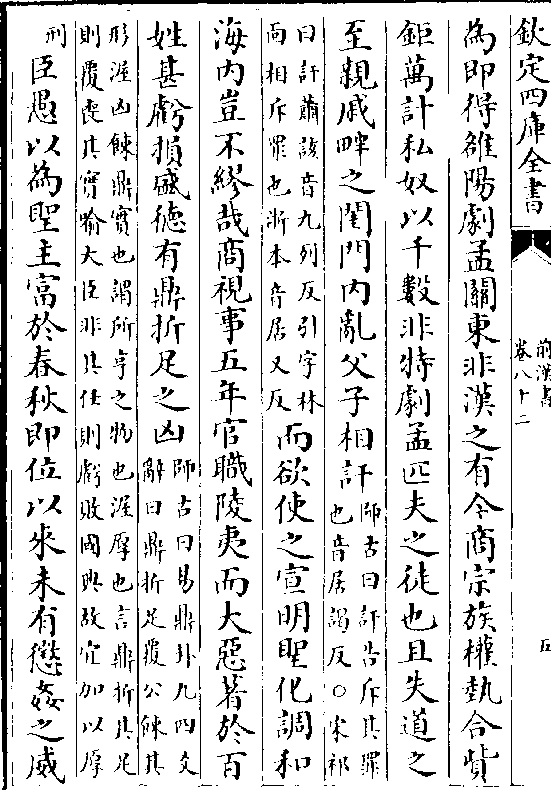 欽定四庫全書
前漢書
卷八十二
五
為即得雒陽劇孟關東非漢之有今商宗族權埶合貲
鉅萬計私奴以千數非特劇孟匹夫之徒也且失道之
至親戚畔之閨門内亂父子相訐師古曰訐告斥其罪也音居謁反○宋祁
曰訐蕭該音九列反引字林面相斥罪也浙本音居又反而欲使之宣明聖化調和
海内豈不繆哉商視事五年官職陵夷而大惡著於百
姓甚虧損盛德有鼎折足之凶師古曰易鼎卦九四爻辭曰鼎折足覆公餗其
形渥凶餗鼎實也謂所亨之物也渥厚也言鼎折其足則覆喪其實喻大臣非其任則虧敗國典故宜加以厚
刑臣愚以為聖主富於春秋即位以來未有懲姦之威